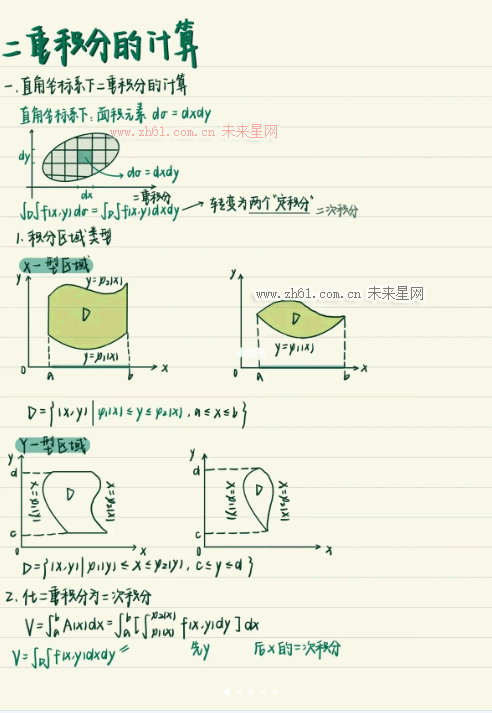 二重积分的计算
一.直角坐标系下二重积分的计算
直角坐标系下:面积元素 dσ = dxdy
www.zh61.com.cn 未来星网
dy
dσ = dxdy
dx
二重积分
∫∫_D f(x,y)dσ = ∫∫_D f(x,y)dxdy → 转变为两个"定积分" 二次积分
1.积分区域类型
X-型区域
y y=φ₂(x) D y=φ₁(x) 0 a b x
www.zh61.com.cn 未来星网
y D y=φ₁(x) 0 a b x
D={(x,y)|φ₁(x)≤y≤φ₂(x),a≤x≤b}
Y-型区域
y d x=φ₁(y) D x=φ₂(y) c 0 x
y d x=φ₁(y) D x=φ₂(y) c 0 x
D={(x,y)|φ₁(y)≤x≤φ₂(y),c≤y≤d}
2.化二重积分为二次积分
V=∫ₐᵇA(x)dx=∫ₐᵇ[∫_{φ₁(x)}^{φ₂(x)} f(x,y)dy]dx
V=∫∫_D f(x,y)dxdy = 先y 后x的二次积分